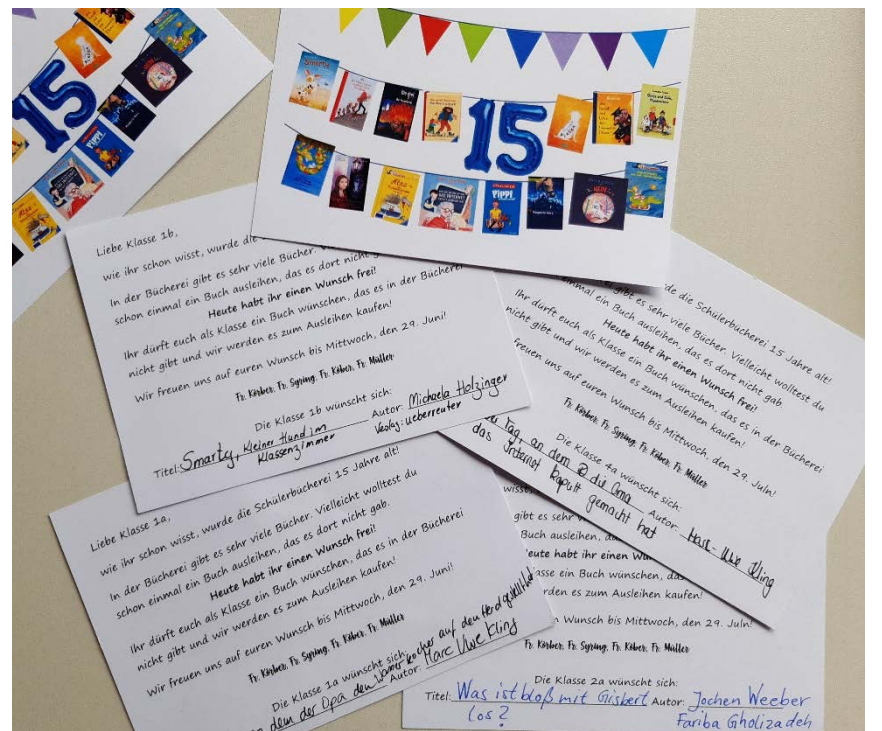 15
15
PIPPI
PIPPI
Liebe Klasse 1b,
wie ihr schon wisst, wurde die
In der Bücherei gibt es sehr viele Bücher.
schon einmal ein Buch ausleihen, das es dort nicht
Heute habt ihr einen Wunsch frei!
Ihr dürft euch als Klasse ein Buch wünschen, das es in der Bücherei
nicht gibt und wir werden es zum Ausleihen kaufen!
Wir freuen uns auf euren Wunsch bis Mittwoch, den 29. Juni!
Fr. Körber, Fr. Syring, Fr. Köber, Fr. Müller
Die Klasse 1b wünscht sich:
Titel: Smarty, kleiner Hund im Autor: Michaela Holzinger
Klassenzimmer Verlag: ueberreuter
die Schülerbücherei 15 Jahre alt!
gibt es sehr viele Bücher. Vielleicht wolltest du
einmal ein Buch ausleihen, das es dort nicht gab
Heute habt ihr einen Wunsch frei!
dürft euch als Klasse ein Buch wünschen, das es in der Bücherei
nicht gibt und wir werden es zum Ausleihen kaufen!
freuen uns auf euren Wunsch bis Mittwoch, den 29. Juln!
Fr. Körber, Fr. Syring, Fr. Köber, Fr. Müller
Die Klasse 4a wünscht sich:
Tag, an dem die Oma Autor: Marc-Uwe Kling
das Internet kaputt gemacht hat
Liebe Klasse 1a,
wie ihr schon wisst, wurde die Schülerbücherei 15 Jahre alt!
In der Bücherei gibt es sehr viele Bücher. Vielleicht wolltest du
schon einmal ein Buch ausleihen, das es dort nicht gab.
Heute habt ihr einen Wunsch frei!
Ihr dürft euch als Klasse ein Buch wünschen, das es in der Bücherei
nicht gibt und wir werden es zum Ausleihen kaufen!
Wir freuen uns auf euren Wunsch bis Mittwoch, den 29. Juni!
Fr. Körber, Fr. Syring, Fr. Köber, Fr. Müller
Die Klasse 1a wünscht sich:
dem der Opa den Wasserkocher auf den Herd gestellt hat
Autor: Marc Uwe Kling
wisst,
gibt es sehr
Buch ausleihen,
eute habt ihr einen
asse ein Buch wünschen,
rden es zum Ausleihen kaufen!
Wunsch bis Mittwoch, den 29. Juln!
Fr. Körber, Fr. Syring, Fr. Köber, Fr. Müller
Die Klasse 2a wünscht sich:
Titel: Was ist bloß mit Gisbert Autor: Jochen Weeber
los? Fariba Gholizadeh